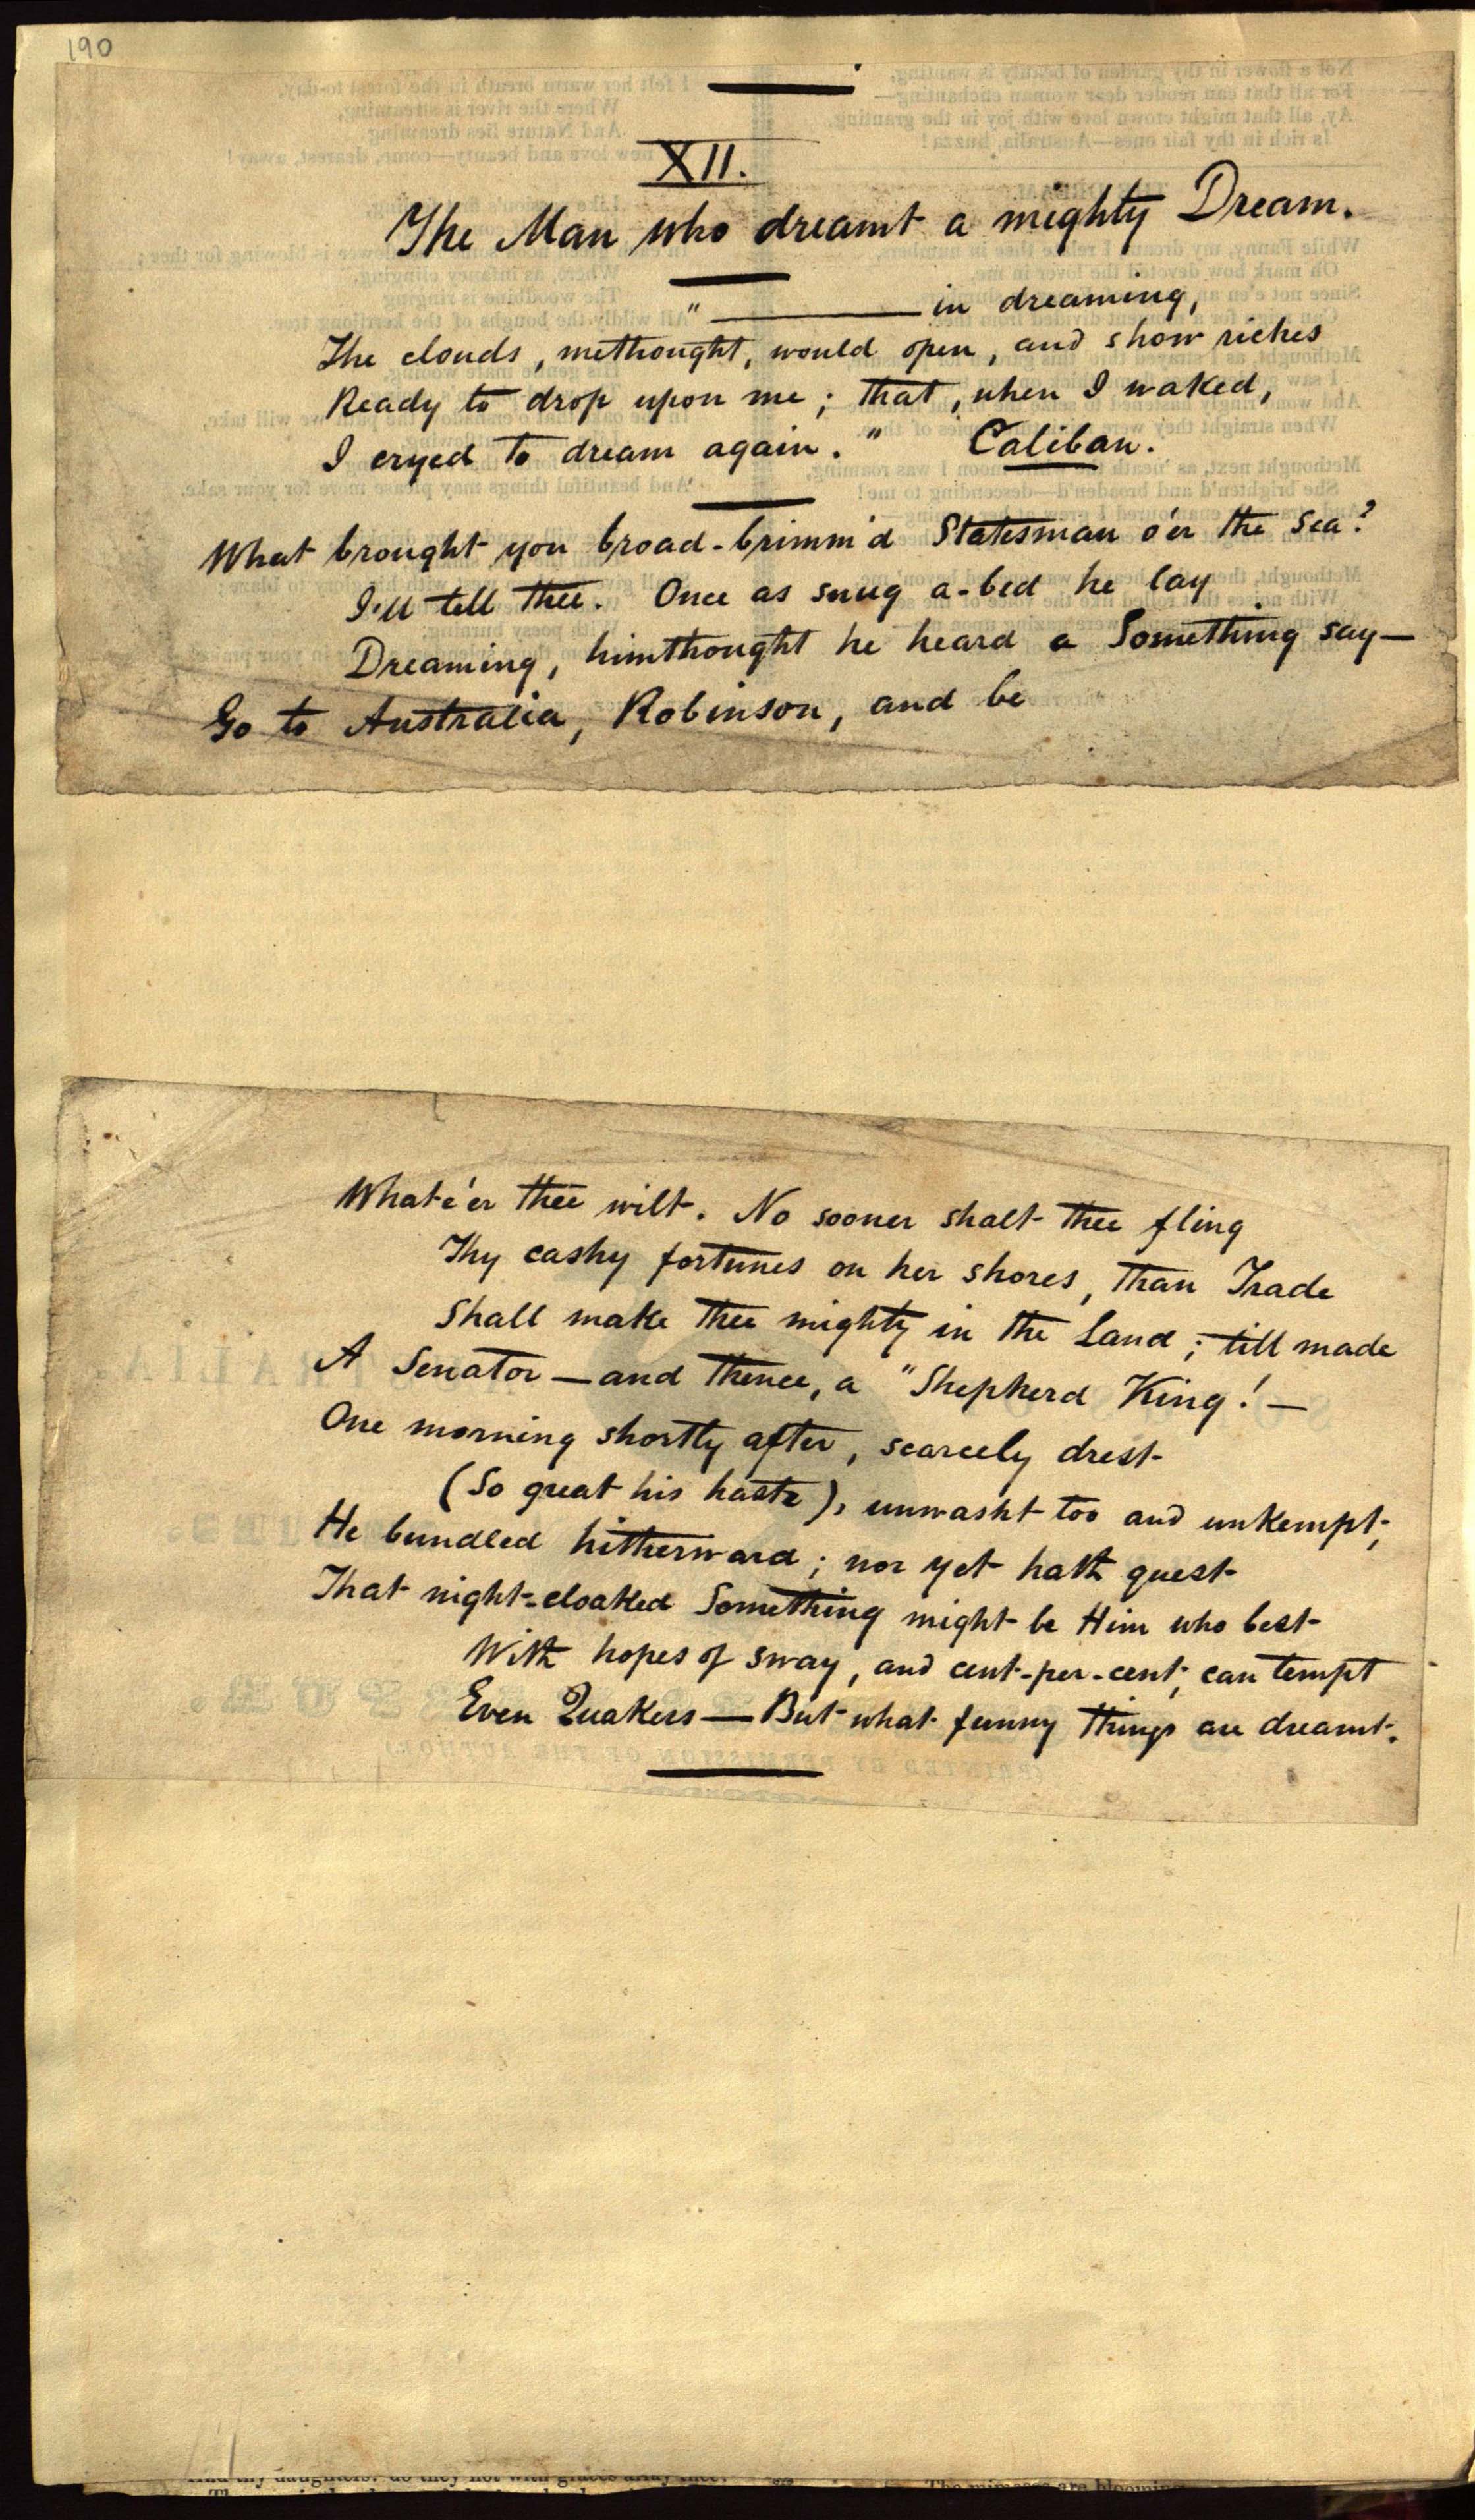 190
XII.
The Man who dreamt a mighty Dream.
"——— in dreaming,
The clouds, methought, would open, and show riches
Ready to drop upon me; that, when I waked,
I cryed to dream again." Caliban.
What brought yon broad-brimm'd Statesman o'er the Sea?
I'll tell thee. Once as snug a-bed he lay
Dreaming, himthought he heard a Something say—
Go to Australia, Robinson, and be
Whate'er thee wilt. No sooner shalt thee fling
Thy cashy fortunes on her shores, than Trade
Shall make thee mighty in the Land; till made
A Senator—and thence, a "Shepherd King!—
One morning shortly after, scarcely drest
(So great his haste), unwasht too and unkempt,
He bundled hitherward; nor yet hath guest
That night-cloaked Something might be Him who best
With hopes of sway, and cent-per-cent, can tempt
Even Quakers—But what funny things are dreamt.